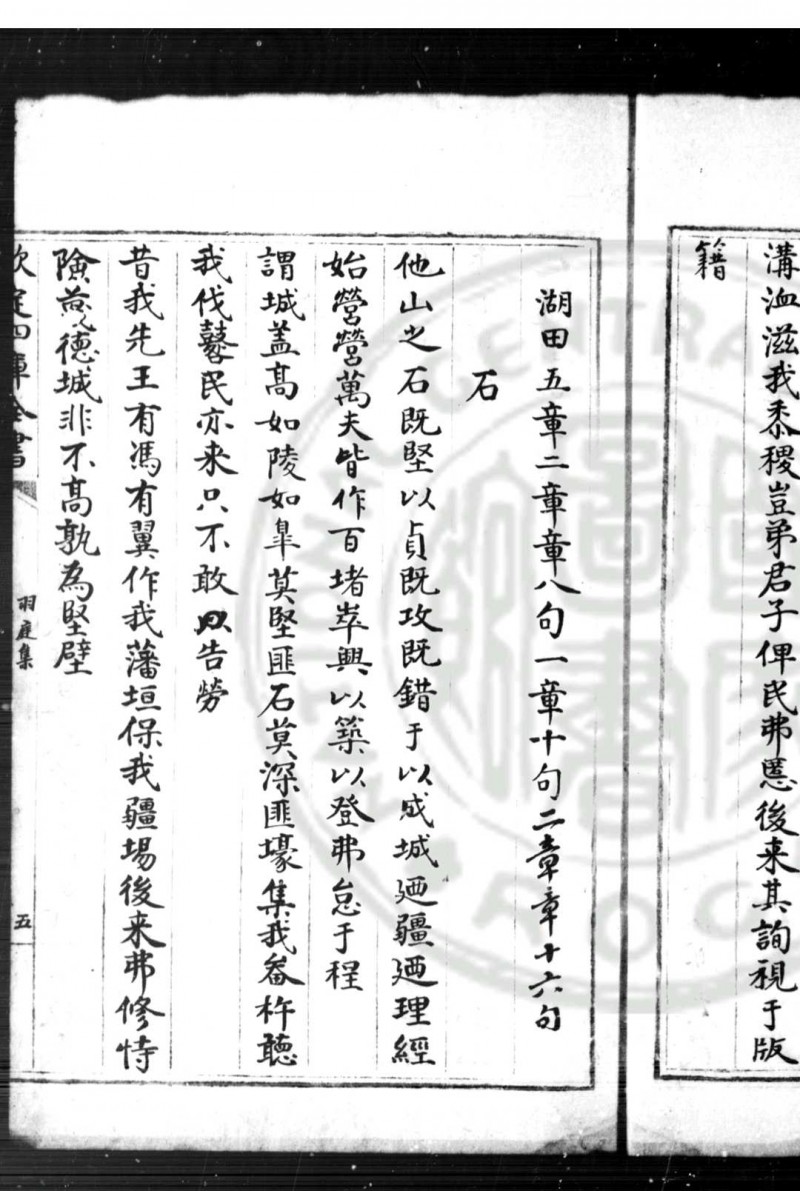 溝洫滋我黍稷豈弟君子俾民弗慝後来其詢視于版
籍
湖田五章二章章八句一章十句二章章十六句
石
他山之石既堅以貞既攻既錯于以成城廼疆廼理經
始營營萬夫皆作百堵崒興以築以登弗怠于程
謂城蓋高如陵如臯莫堅匪石莫深匪壕集我畚杵聽
我伐鼛民亦来只不敢以告勞
昔我先王有馮有翼作我藩垣保我疆埸後来弗修恃
險蔑德城非不高孰為堅壁
欽定四庫全書
羽庭集
五